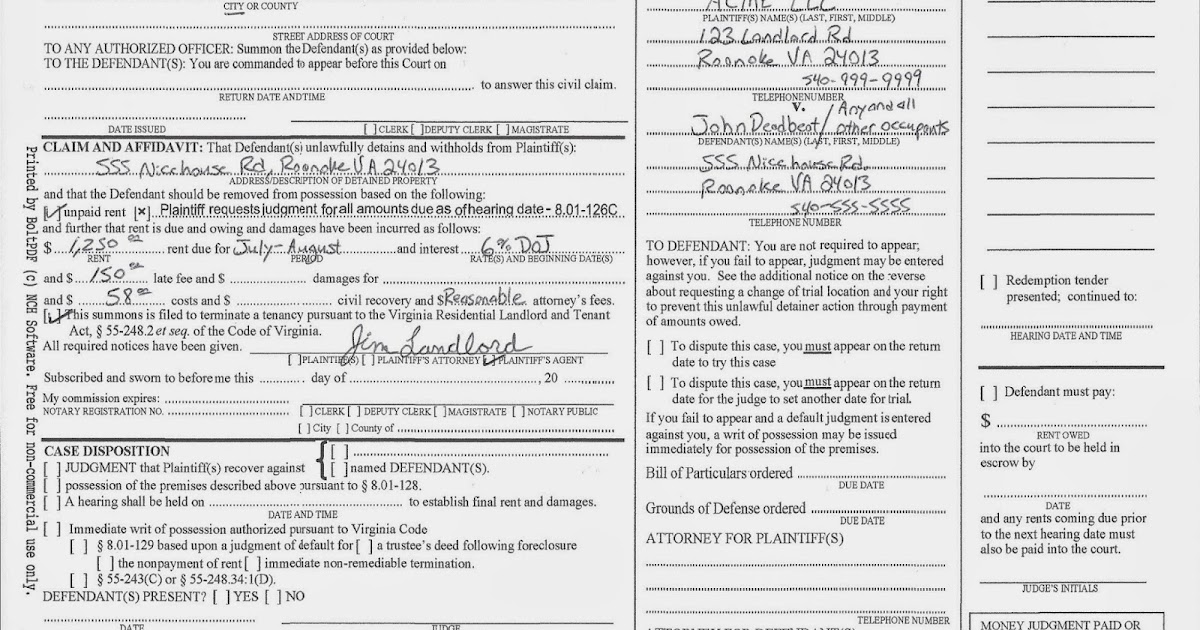 CITY OR COUNTY
STREET ADDRESS OF COURT
TO ANY AUTHORIZED OFFICER: Summon the Defendant(s) as provided below:
TO THE DEFENDANT(S): You are commanded to appear before this Court on
to answer this civil claim.
RETURN DATE AND TIME
DATE ISSUED
[ ] CLERK [ ] DEPUTY CLERK [ ] MAGISTRATE
CLAIM AND AFFIDAVIT: That Defendant(s) unlawfully detains and withholds from Plaintiff(s):
555 Nicehouse Rd, Roanoke VA 24013
ADDRESS/DESCRIPTION OF DETAINED PROPERTY
and that the Defendant should be removed from possession based on the following:
[✓] unpaid rent [x] Plaintiff requests judgment for all amounts due as of hearing date - 8.01-126C
and further that rent is due and owing and damages have been incurred as follows:
$ 1,250 00 rent due for July-August and interest 6% DOJ
RENT PERIOD RATE(S) AND BEGINNING DATE(S)
and $ 150 00 late fee and $ damages for
and $ 58 00 costs and $ civil recovery and $ Reasonable attorney's fees.
[✓] This summons is filed to terminate a tenancy pursuant to the Virginia Residential Landlord and Tenant
Act, § 55-248.2 et seq. of the Code of Virginia.
All required notices have been given. Jim Landlord
[ ] PLAINTIFF(S) [ ] PLAINTIFF'S ATTORNEY [✓] PLAINTIFF'S AGENT
Subscribed and sworn to before me this day of , 20
My commission expires:
NOTARY REGISTRATION NO. [ ] CLERK [ ] DEPUTY CLERK [ ] MAGISTRATE [ ] NOTARY PUBLIC
[ ] City [ ] County of
CASE DISPOSITION
[ ]
[ ] JUDGMENT that Plaintiff(s) recover against [ ] named DEFENDANT(S).
[ ] possession of the premises described above pursuant to § 8.01-128.
[ ] A hearing shall be held on to establish final rent and damages.
DATE AND TIME
[ ] Immediate writ of possession authorized pursuant to Virginia Code
[ ] § 8.01-129 based upon a judgment of default for [ ] a trustee's deed following foreclosure
[ ] the nonpayment of rent [ ] immediate non-remediable termination.
[ ] § 55-243(C) or § 55-248.34:1(D).
DEFENDANT(S) PRESENT? [ ] YES [ ] NO
DATE JUDGE
Printed by BoltPDF (c) NCH Software. Free for non-commercial use only.
ACME LLC
PLAINTIFF(S) NAME(S) (LAST, FIRST, MIDDLE)
123 Landlord Rd
Roanoke VA 24013
540-999-9999
TELEPHONE NUMBER
v.
John Deadbeat / Any and all other occupants
DEFENDANT(S) NAME(S) (LAST, FIRST, MIDDLE)
555 Nicehouse Rd.
Roanoke VA 24013
540-555-5555
TELEPHONE NUMBER
TO DEFENDANT: You are not required to appear;
however, if you fail to appear, judgment may be entered
against you. See the additional notice on the reverse
about requesting a change of trial location and your right
to prevent this unlawful detainer action through payment
of amounts owed.
[ ] To dispute this case, you must appear on the return
date to try this case
[ ] To dispute this case, you must appear on the return
date for the judge to set another date for trial.
If you fail to appear and a default judgment is entered
against you, a writ of possession may be issued
immediately for possession of the premises.
Bill of Particulars ordered
DUE DATE
Grounds of Defense ordered
DUE DATE
ATTORNEY FOR PLAINTIFF(S)
TELEPHONE NUMBER
[ ] Redemption tender
presented; continued to:
HEARING DATE AND TIME
[ ] Defendant must pay:
$
RENT OWED
into the court to be held in
escrow by
DATE
and any rents coming due prior
to the next hearing date must
also be paid into the court.
JUDGE'S INITIALS
MONEY JUDGMENT PAID OR